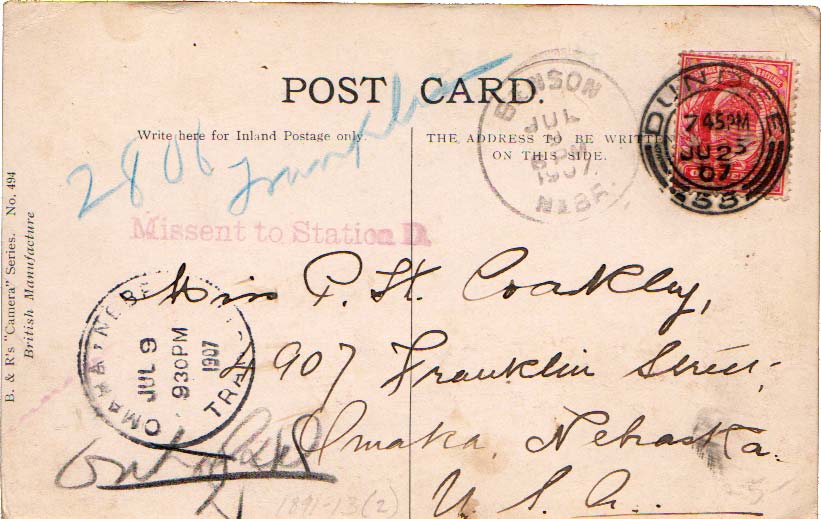 POST CARD.
Write here for Inland Postage only.
THE ADDRESS TO BE WRITTEN
ON THIS SIDE.
BENSON
JUL
6 PM
1907
NEBR.
DUNDEE
7 45PM
JU 25
07
2806 Franklin
Missent to Station D.
B. & R's "Camera" Series. No. 494
British Manufacture
OMAHA, NEBR.
TRAN
JUL 9
930PM
1907
Miss P. H. Coakley,
4907 Franklin Street,
Omaha, Nebraska.
U. S. A.
1891-13(2)